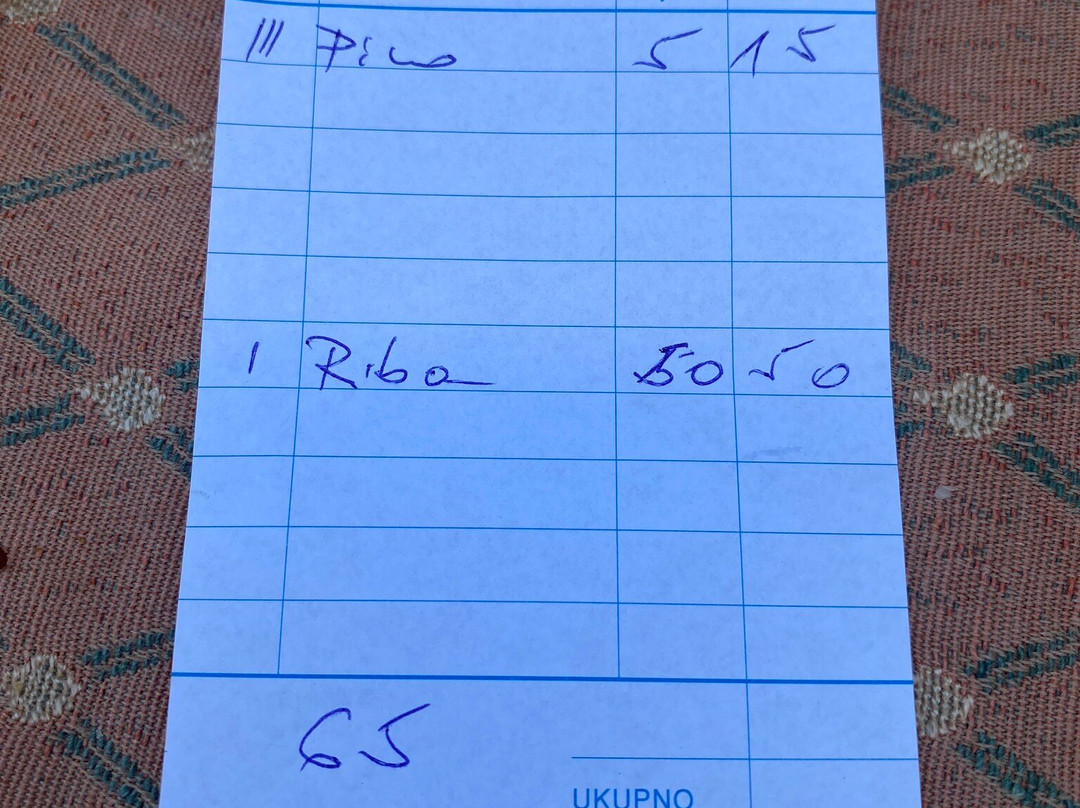 ||| Pivo 5 15
| Riba 50 50
65
UKUPNO